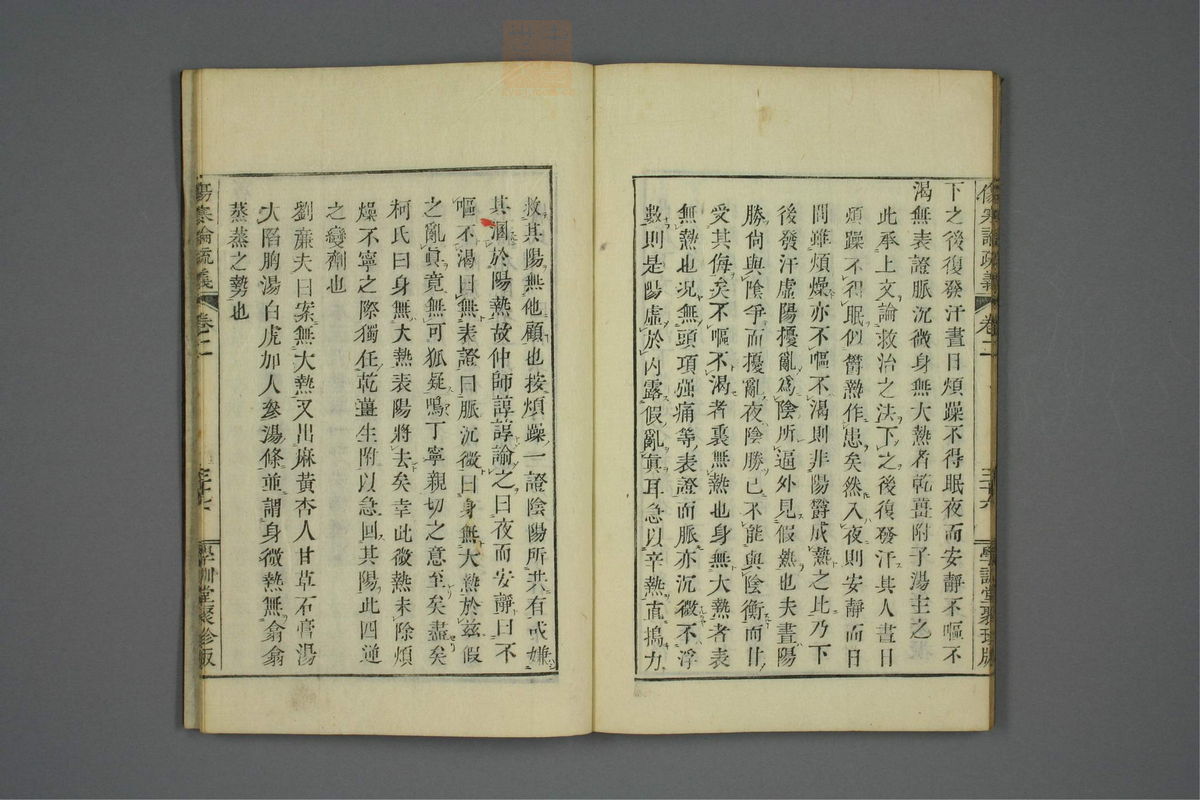 下之後復發汗晝日煩躁不得眠夜而安靜不嘔不
渴無表證脈沉微身無大熱者乾薑附子湯主之
此承上文論救治之法下之後復發汗其人晝日
煩躁不得眠似鬱熱作患矣然入夜則安靜而日
間雖煩燥亦不嘔不渴則非陽鬱成熱之比乃下
後發汗虛陽擾亂爲陰所逼外見假熱也夫晝陽
勝尙與陰爭而擾亂夜陰勝已不能與陰衡而甘
受其侮矣不嘔不渴者裏無熱也身無大熱者表
無熱也况無頭項强痛等表證而脈亦沉微不浮
數則是陽虛於內露假亂眞耳急以辛熱直搗力
救其陽無他顧也按煩躁一證陰陽所共有或嫌
其溷於陽熱故仲師諄諄諭之曰夜而安靜曰不
嘔不渴曰無表證曰脈沉微曰身無大熱於玆假
之亂眞竟無可狐疑嗚丁寧親切之意至矣盡矣
柯氏曰身無大熱表陽將去矣幸此微熱未除煩
燥不寧之際獨任乾薑生附以急回其陽此四逆
之變劑也
劉廉夫曰案無大熱又出麻黃杏人甘草石膏湯
大陷胸湯白虎加人參湯條並謂身微熱無翕翕
蒸蒸之勢也
傷寒論疏義
卷二
學訓堂聚珍版